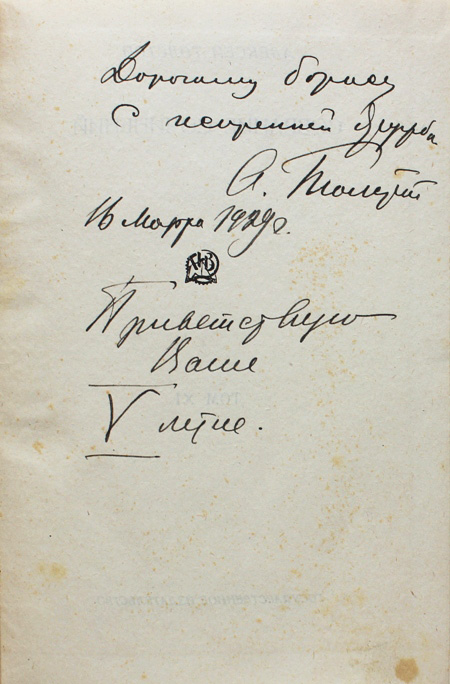 Дорогому Борису
С искренней дружбой
А. Толстой
16 марта 1929 г.
Приветствую
Ваше
V летие.
ТОМ XI